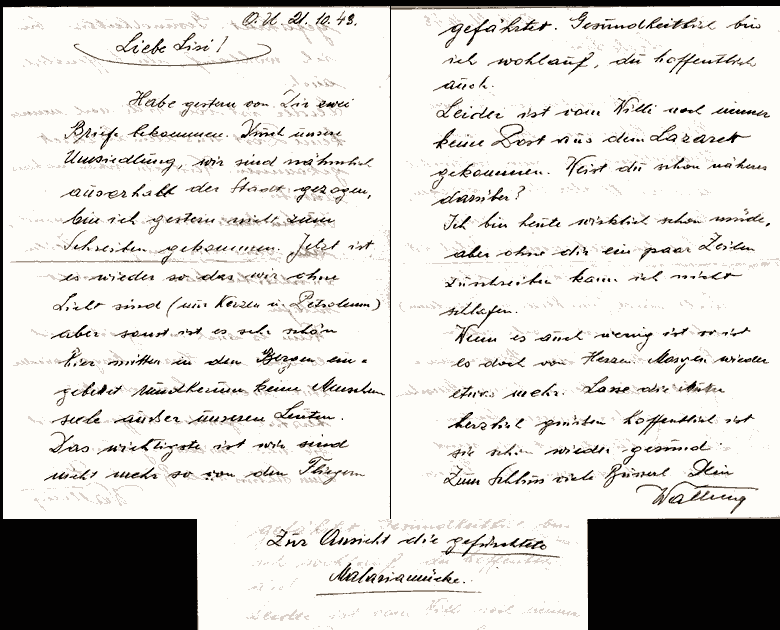 O. U. 21. 10. 43.
Liebe Lisi!
Habe gestern von Dir zwei
Briefe bekommen. Durch unsere
Umsiedlung, wir sind nähmlich
auserhalb der Stadt gezogen,
bin ich gestern nicht zum
Schreiben gekommen. Jetzt ist
es wieder so das wir ohne
Licht sind (nur Kerzen u. Petroleum)
aber sonst ist es sehr schön
hier mitten in den Bergen ein=
gebettet rundherum keine Menschen
seele außer unseren Leuten.
Das wichtigste ist wir sind
nicht mehr so von den Fliegern
gefährtet. Gesundheitlich bin
ich wohlauf, du hoffentlich
auch.
Leider ist vom Willi noch immer
keine Post aus dem Lazaret
gekommen. Weist du schon näheres
darüber?
Ich bin heute wirklich schon müde,
aber ohne dir ein paar Zeilen
zuschreiben kann ich nicht
schlafen.
Wenn es auch wenig ist so ist
es doch von Herzen. Morgen wieder
etwas mehr. Lasse die Mutter
herzlich grüßen hoffentlich ist
sie schon wieder gesund.
Zum Schluss viele Busserl Dein
Zur Ansicht die gefürchtete
Malariamücke.